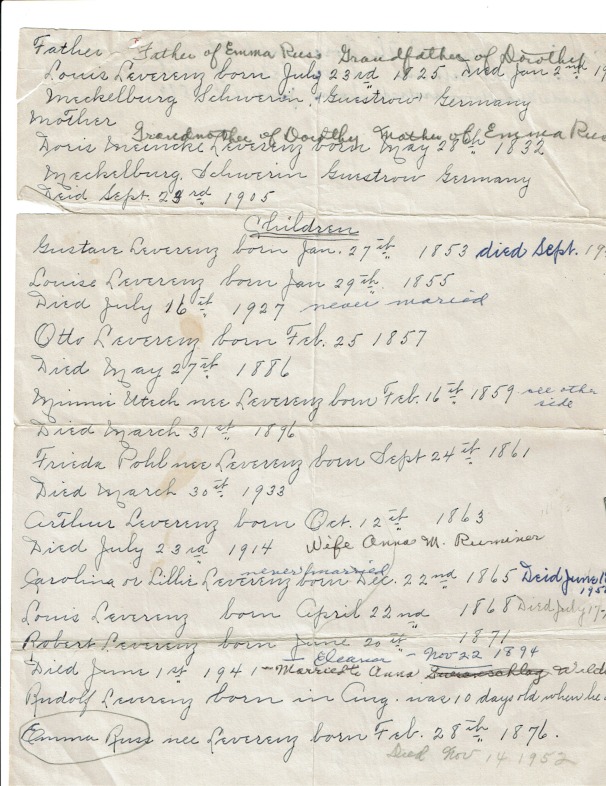 Father - Father of Emma Russ Grandfather of Dorothy
Louis Leverenz born July 23rd 1825 Died Jan 2nd 19
Meckelburg Schwerin, Guestrow Germany
Mother
Grandmother of Dorothy Mother of Emma Russ
Doris Meincke Leverenz born May 28th 1832
Meckelburg, Schwerin Guestrow Germany
Deid Sept. 23rd 1905
Children
Gustave Leverenz born Jan. 27th 1853 died Sept. 19
Louise Leverenz born Jan 29th 1855
Died July 16th 1927 never married
Otto Leverenz born Feb. 25 1857
Died May 27th 1886
Minnie Utech nee Leverenz born Feb. 16th 1859 see other
side
Died March 31st 1896
Frieda Pohl nee Leverenz born Sept 24th 1861
Died March 30th 1933
Arthur Leverenz born Oct. 12th 1863
Died July 23rd 1914 Wife Anna M. Ruminer
never married
Carolina or Lillie Leverenz born Dec. 22nd 1865 Deid June 1
195
Louis Leverenz born April 22nd 1868 Died July 17
Robert Leverenz born June 20th 1871
Eleanor - Nov 22 1894
Died June 1st 1941 - Married to Anna Wild
Rudolf Leverenz born in Aug. was 10 days old when he
Emma Russ nee Leverenz born Feb. 28th 1876.
Died Nov 14 1952